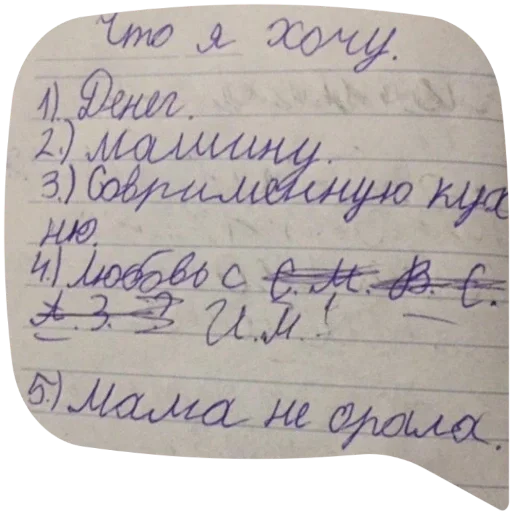 Что я хочу.
1.) Денег.
2.) машину.
3.) Современную кух
ню.
4.) Любовь с С. М. В. С.
А. З. И. М.!
5.) Мама не орала.